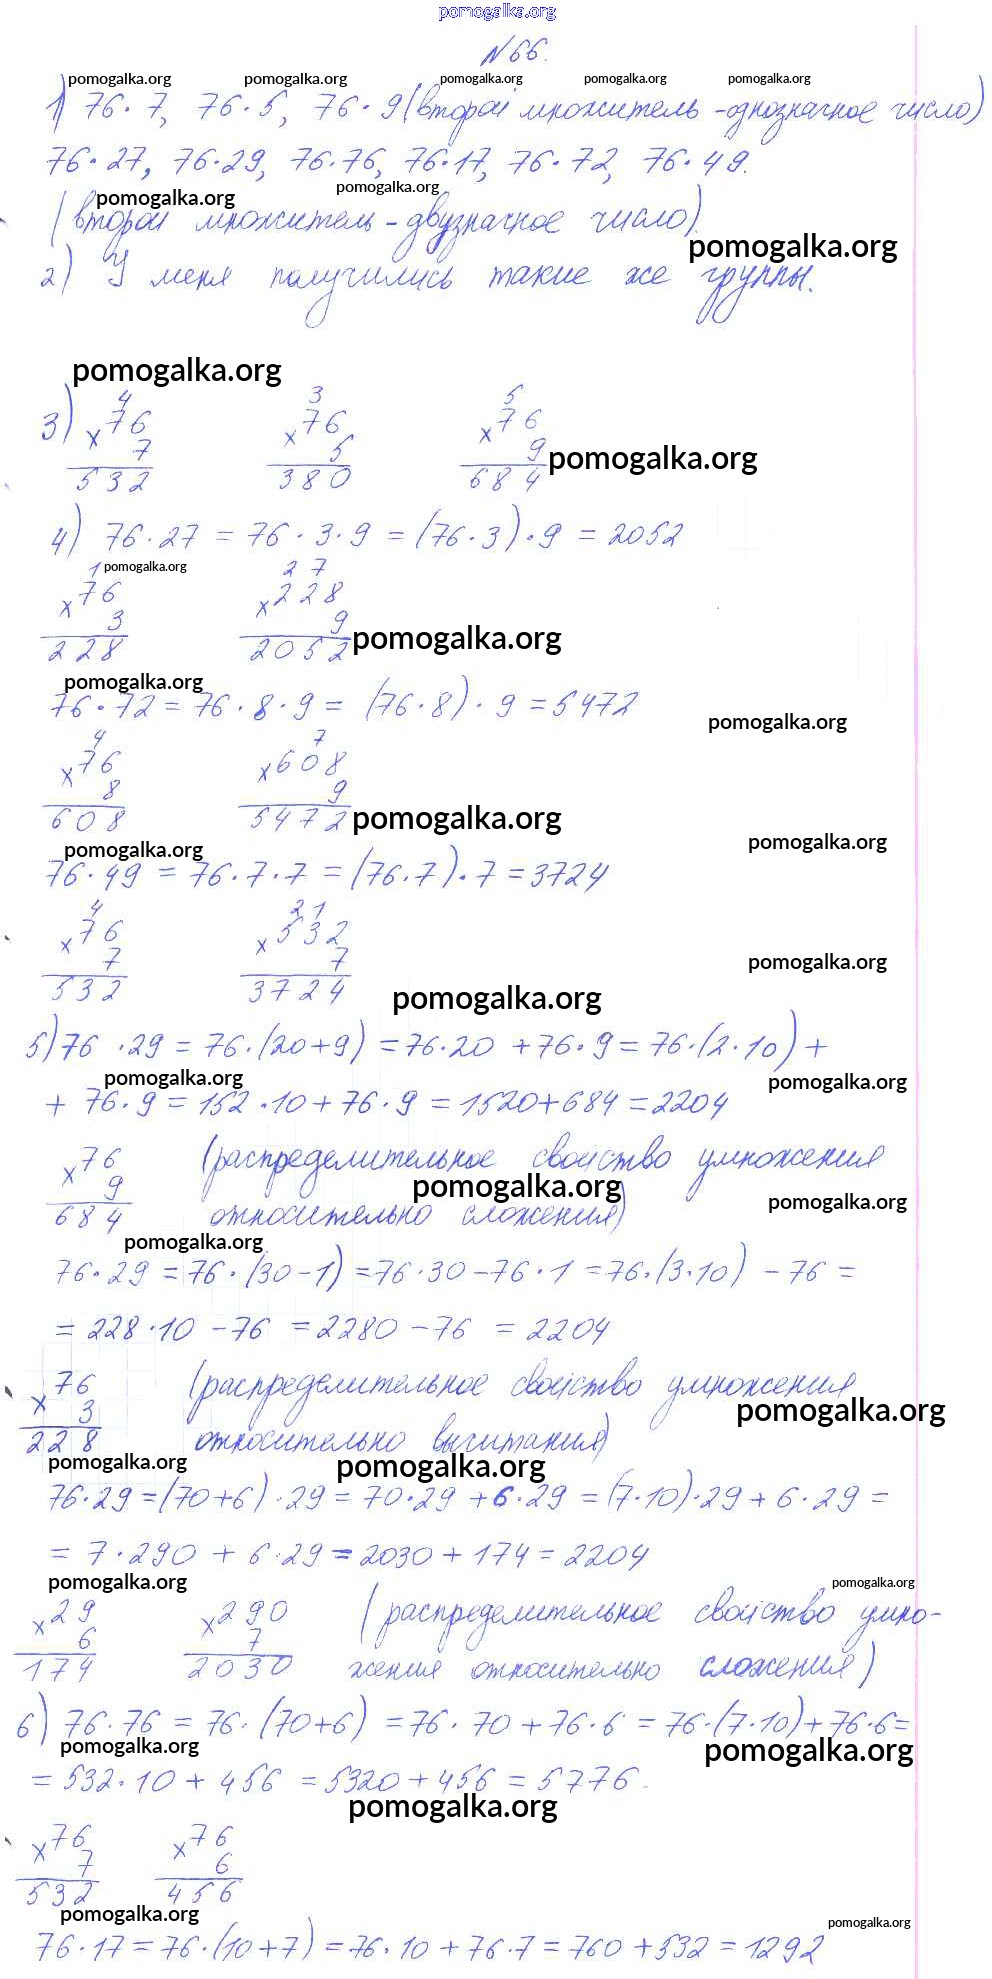 pomogalka.org
№66.
pomogalka.org pomogalka.org pomogalka.org pomogalka.org pomogalka.org
1) 76·7, 76·5, 76·9 (второй множитель - однозначное число)
76·27, 76·29, 76·76, 76·17, 76·72, 76·49.
pomogalka.org pomogalka.org
(второй множитель - двузначное число).
pomogalka.org
2) У меня получились такие же группы.
pomogalka.org
4 3 5
3) ×76 ×76 ×76
7 5 9
pomogalka.org
532 380 684
4) 76·27 = 76·3·9 = (76·3)·9 = 2052
1 pomogalka.org 2 7
×76 ×228
3 9
pomogalka.org
228 2052
pomogalka.org
76·72 = 76·8·9 = (76·8)·9 = 5472
pomogalka.org
4 7
×76 ×608
8 9
608 5472 pomogalka.org
pomogalka.org pomogalka.org
76·49 = 76·7·7 = (76·7)·7 = 3724
4 21
×76 ×532
7 7
pomogalka.org
532 3724
pomogalka.org
5) 76·29 = 76·(20+9) = 76·20 + 76·9 = 76·(2·10) +
pomogalka.org pomogalka.org
+ 76·9 = 152·10 + 76·9 = 1520+684 = 2204
×76 (распределительное свойство умножения
9 pomogalka.org pomogalka.org
684 относительно сложения)
pomogalka.org
76·29 = 76·(30-1) = 76·30 - 76·1 = 76·(3·10) - 76 =
= 228·10 - 76 = 2280 - 76 = 2204
×76 (распределительное свойство умножения
3 pomogalka.org
228 относительно вычитания)
pomogalka.org pomogalka.org
76·29 = (70+6)·29 = 70·29 + 6·29 = (7·10)·29 + 6·29 =
= 7·290 + 6·29 = 2030 + 174 = 2204
pomogalka.org pomogalka.org
×29 ×290 (распределительное свойство умно-
6 7
174 2030 жения относительно сложения)
6) 76·76 = 76·(70+6) = 76·70 + 76·6 = 76·(7·10) + 76·6 =
pomogalka.org pomogalka.org
= 532·10 + 456 = 5320 + 456 = 5776.
pomogalka.org
×76 ×76
7 6
532 456
pomogalka.org pomogalka.org
76·17 = 76·(10+7) = 76·10 + 76·7 = 760 + 532 = 1292